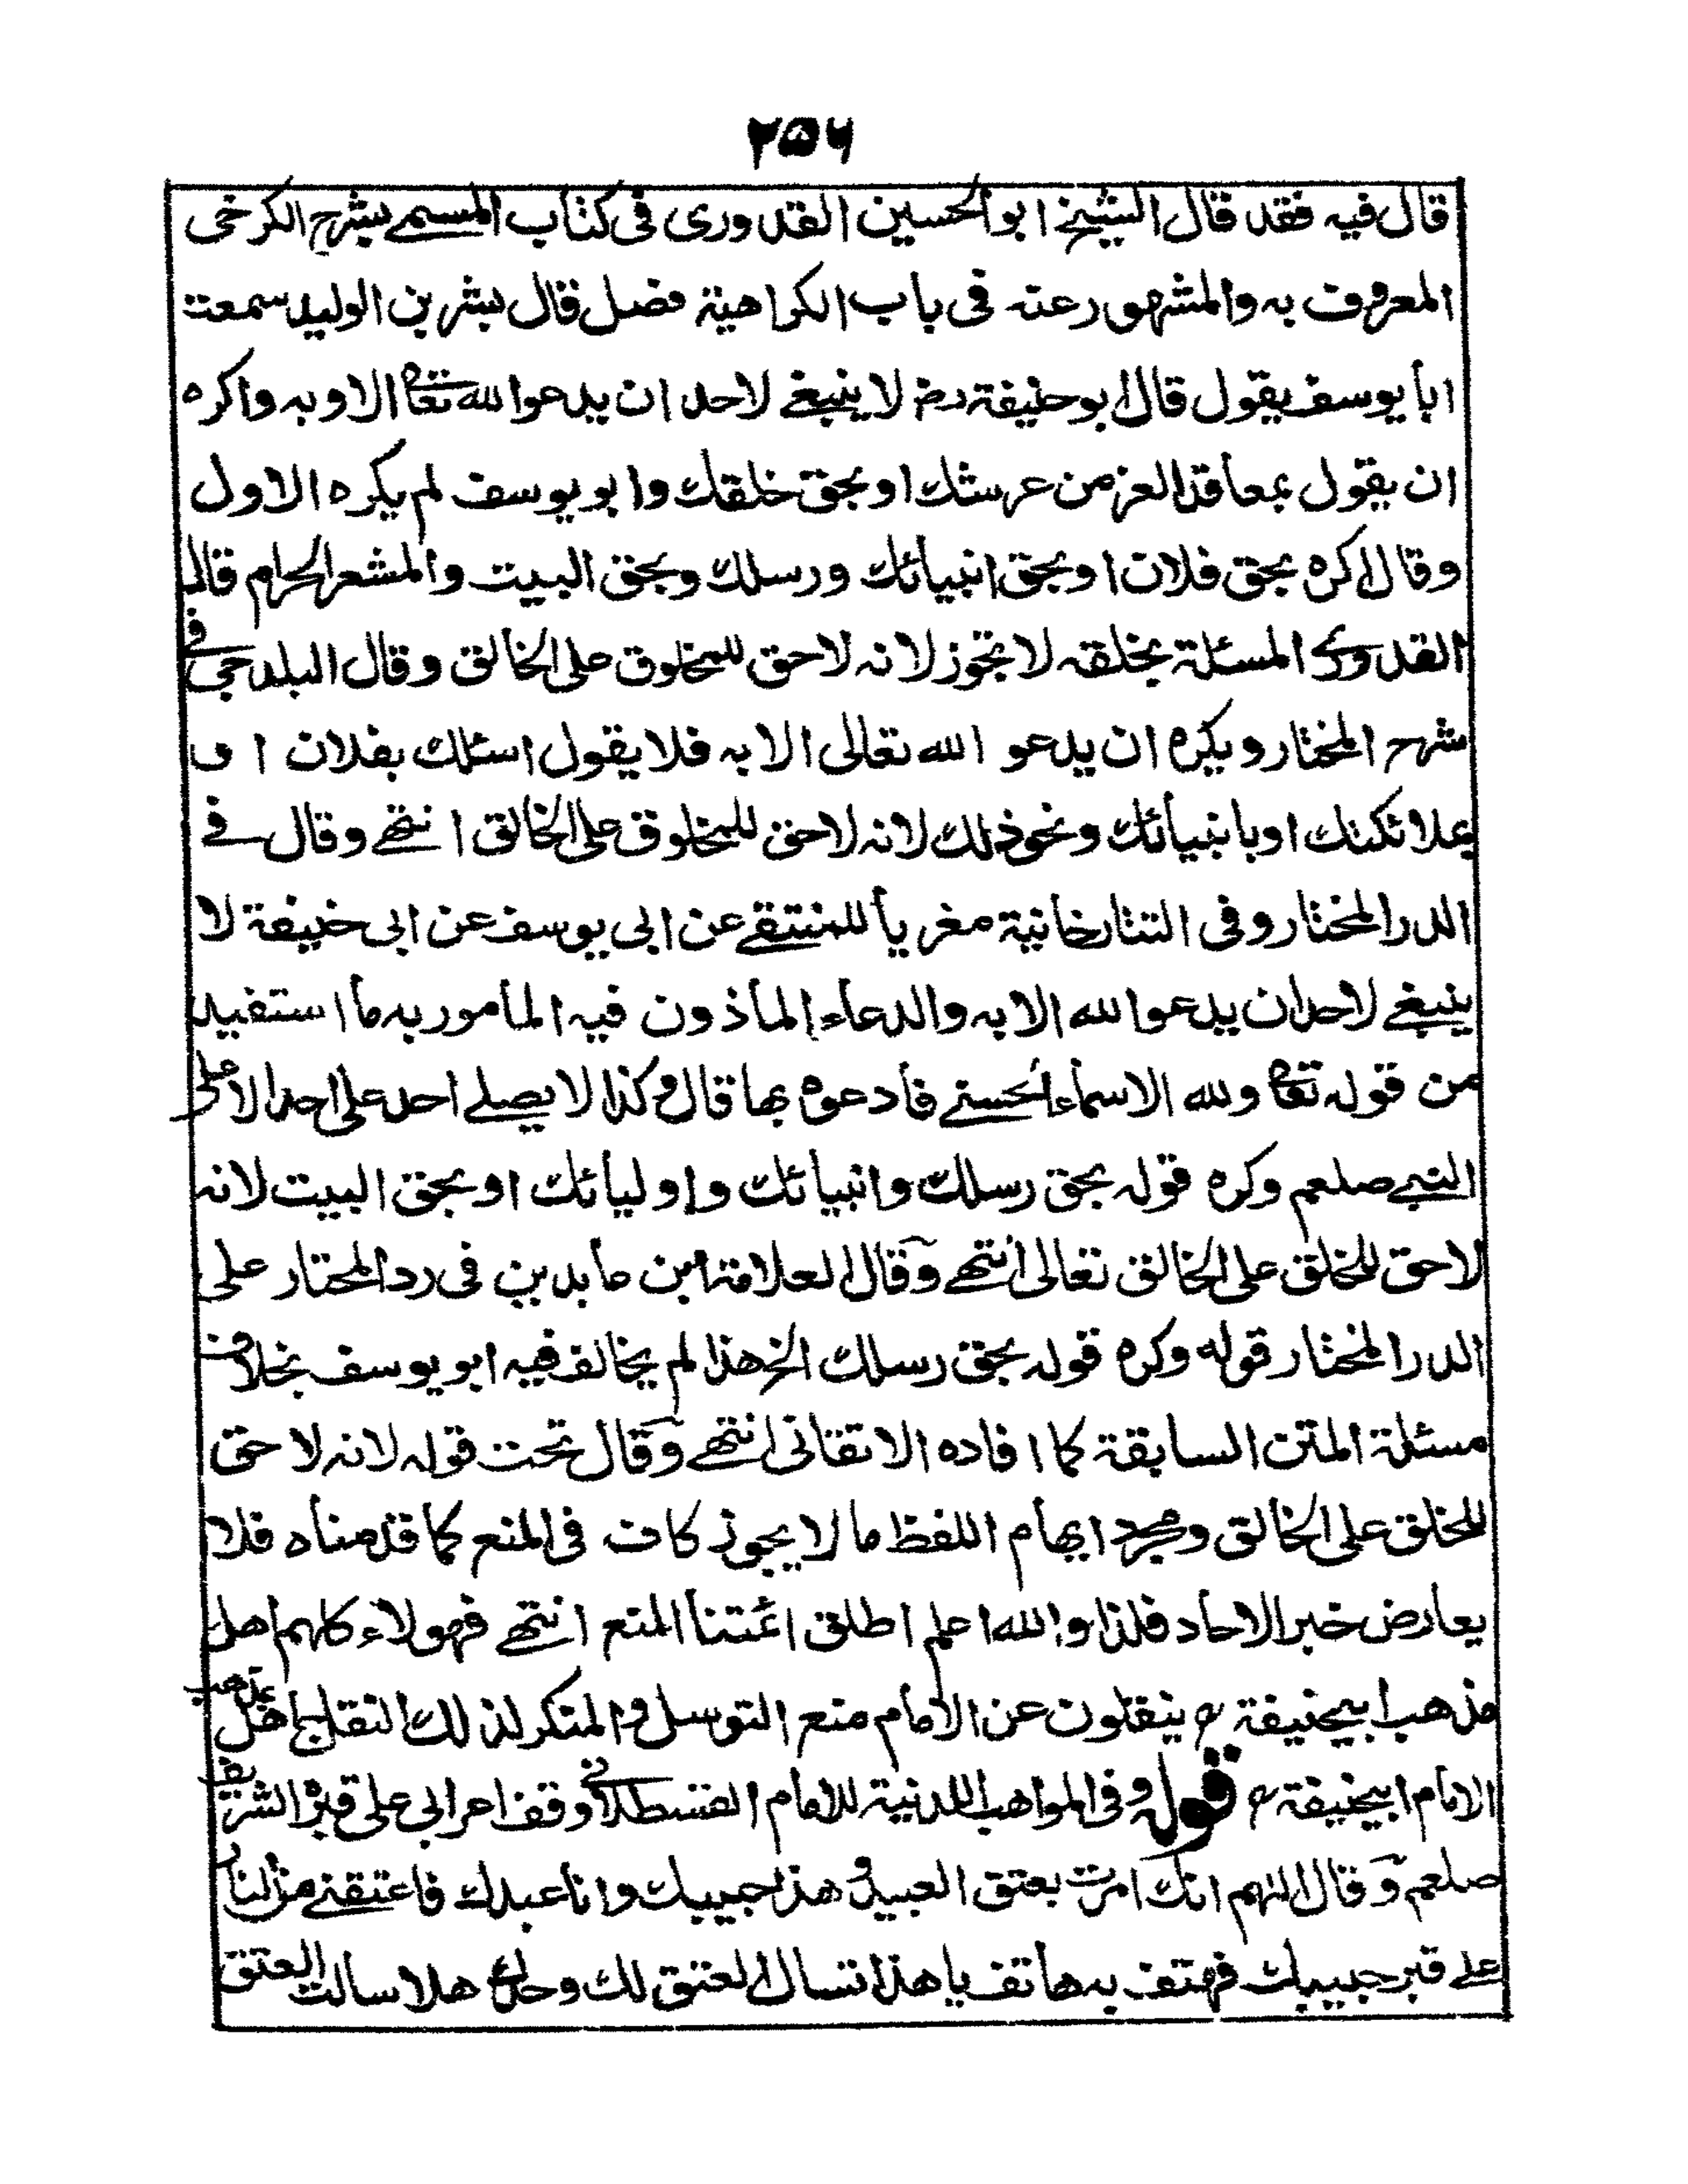 ٢٥٦
قال فيه فقد قال الشيخ ابو الحسين القدوري في كتاب المسمى بشرح الكرخي
المعروف به والمشهور عنه في باب الكراهية فصل قال بشر بن الوليد سمعت
ابا يوسف يقول قال ابو حنيفة رض لا ينبغي لاحد ان يدعوا الله تعا الا وبه واكره
ان يقول بمعاقد العز من عرشك او بحق خلقك وابو يوسف لم يكره الاول
وقال اكره بحق فلان او بحق انبيائك ورسلك وبحق البيت والمشعر الحرام قال
القدوري المسئلة بخلقه لا تجوز لانه لا حق للمخلوق على الخالق وقال البلدجي في
شرح المختار ويكره ان يدعو الله تعالى الا به فلا يقول اسئلك بفلان او
بملائكتك او بانبيائك ونحو ذلك لانه لا حق للمخلوق على الخالق انتهى وقال في
الدر المختار وفي التتارخانية مغريا للمنتقى عن ابي يوسف عن ابي حنيفة لا
ينبغي لاحد ان يدعوا الله الا به والدعاء الماذون فيه المامور به ما استفيد
من قوله تعا ولله الاسماء الحسنى فادعوه بها قال وكذا لا يصلى احد على احد الا على
النبي صلعم وكره قوله بحق رسلك وانبيائك واوليائك او بحق البيت لانه
لا حق للخلق على الخالق تعالى انتهى وقال العلامة ابن عابدين في رد المحتار على
الدر المختار قوله وكره قوله بحق رسلك الخ هذا لم يخالف فيه ابو يوسف بخلاف
مسئلة المتن السابقة كما افاده الاتقاني انتهى وقال تحت قوله لانه لا حق
للخلق على الخالق ومجرد ايهام اللفظ ما لا يجوز كاف في المنع كما قدمناه فلا
يعارض خبر الاحاد فلذا والله اعلم اطلق ائمتنا المنع انتهى فهولاء كلهم اهل
مذهب ابيحنيفة رح ينقلون عن الامام منع التوسل والمنكر لذلك النقل جاهل بمذهب
الامام ابيحنيفة رح قوله وفي المواهب اللدنية للامام القسطلاني وقف اعرابي على قبره الشريف
صلعم وقال اللهم انك امرت بعتق العبيد وهذا حبيبك وانا عبدك فاعتقني من النار
على قبر حبيبك فهتف به هاتف يا هذا تسال العتق لك وحدك هلا سالت العتق